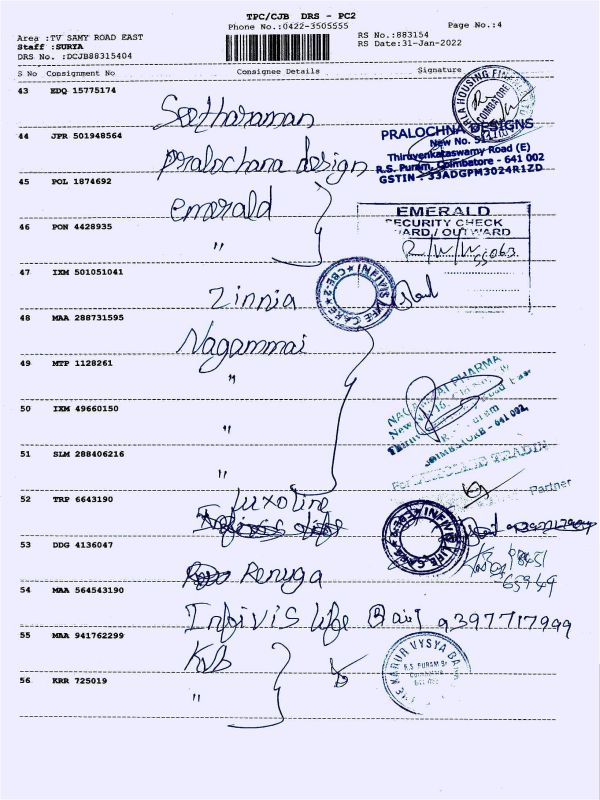 TPC/CJB DRS - PC2
Phone No.:0422-3505555
Page No.:4
Area :TV SAMY ROAD EAST
RS No.:883154
Staff :SURYA
RS Date:31-Jan-2022
DRS No. :DCJB88315404
S No Consignment No Consignee Details Signature
43 EDQ 15775174
Seetharaman
COIMBATORE
44 JPR 501948564
PRALOCHNA DESIGNS
New No.
Thiruvenkataswamy Road (E)
R.S. Puram, Coimbatore - 641 002
GSTIN : 33ADGPM3024R1ZD
pralochana design
45 POL 1874692
emerald
EMERALD
SECURITY CHECK
WARD / OUTWARD
46 PON 4428935
"
47 IXM 501051041
Zinnia
INFIVIS LIFE CARE CBE-2
48 MAA 288731595
Nagammai
49 MTP 1128261
"
NAGAMMAI PHARMA
50 IXM 49660150
"
COIMBATORE - 641 002.
51 SLM 288406216
"
For
Partner
52 TRP 6643190
Luxoline
INFIVIS LIFE CARE CBE-2
53 DDG 4136047
Renuga
54 MAA 564543190
Infivis life 9397717999
55 MAA 941762299
KVB
THE KARUR VYSYA BANK
R.S. PURAM
Coimbatore
56 KRR 725019
"